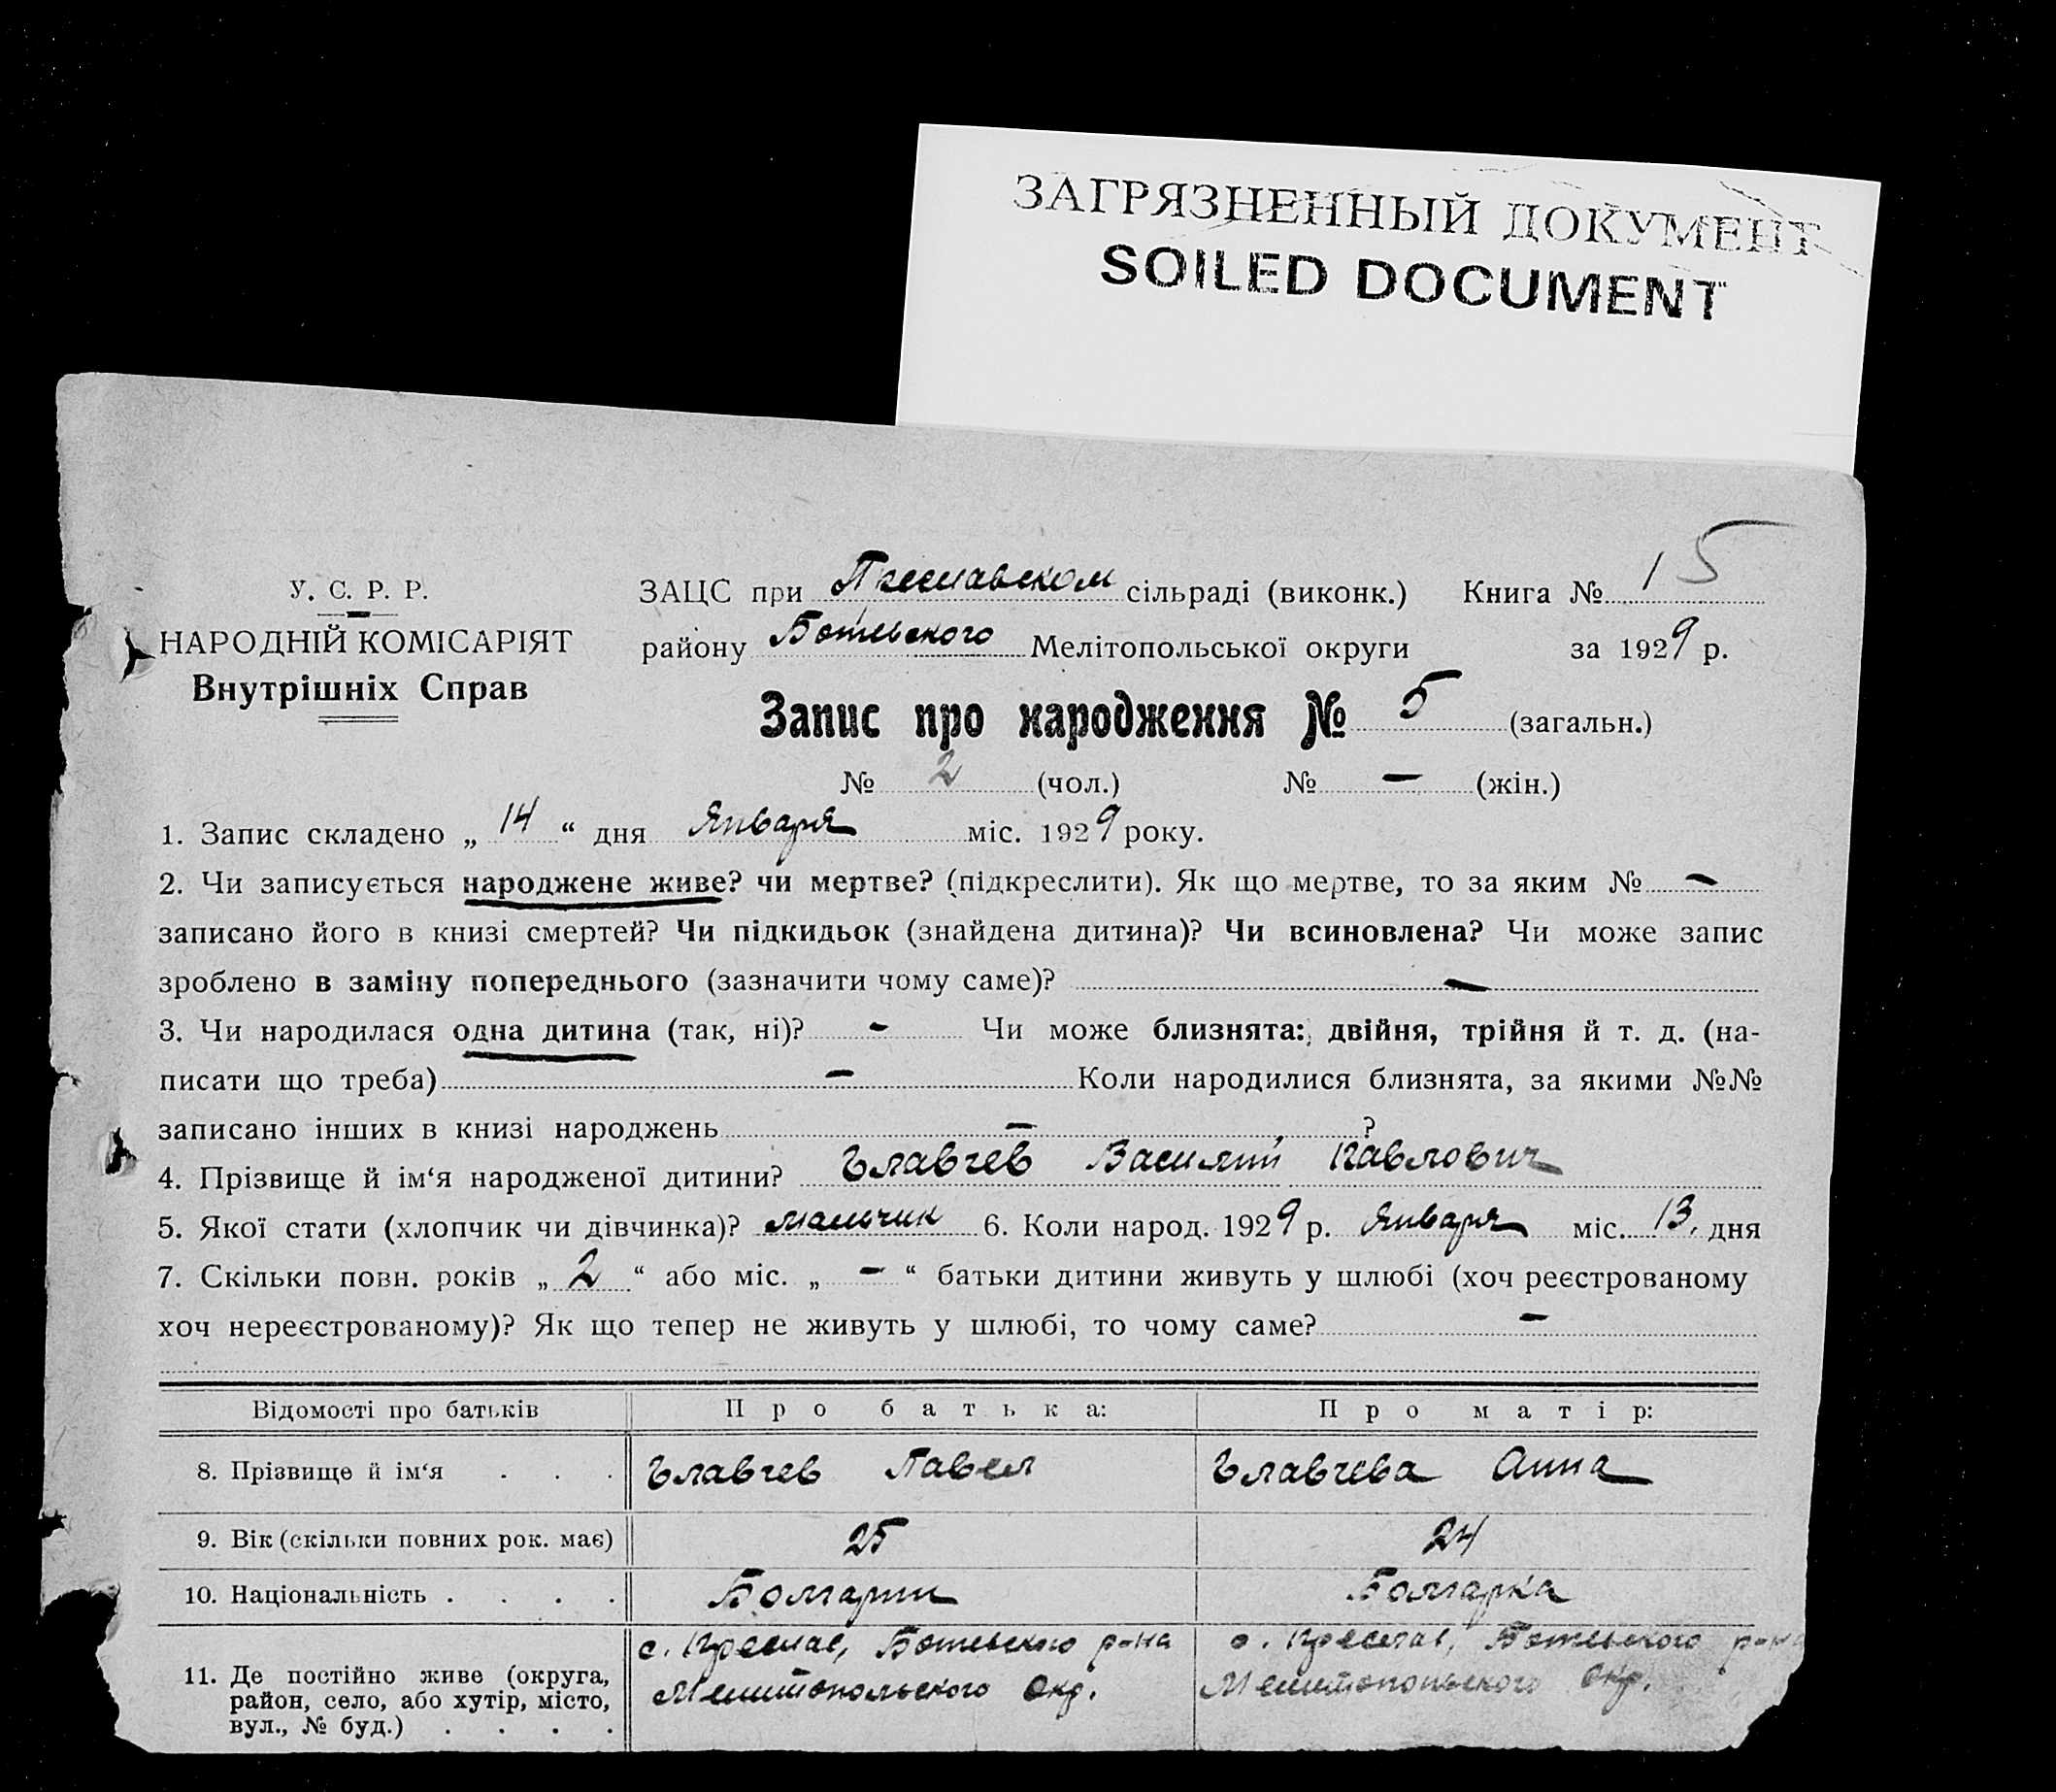 ЗАГРЯЗНЕННЫЙ ДОКУМЕНТ
SOILED DOCUMENT
У. С. Р. Р.
НАРОДНІЙ КОМІСАРІЯТ
Внутрішніх Справ
ЗАЦС при Преславском сільраді (виконк.) Книга № 15
району Ботевского Мелітопольської округи за 1929 р.
Запис про народження № 5 (загальн.)
№ 2 (чол.) № — (жін.)
1. Запис складено „ 14 “ дня Января міс. 1929 року.
2. Чи записується народжене живе? чи мертве? (підкреслити). Як що мертве, то за яким № —
записано його в книзі смертей? Чи підкидьок (знайдена дитина)? Чи всиновлена? Чи може запис
зроблено в заміну попереднього (зазначити чому саме)? —
3. Чи народилася одна дитина (так, ні)? — Чи може близнята: двійня, трійня й т. д. (на-
писати що треба) — Коли народилися близнята, за якими №№
записано інших в книзі народжень — ?
4. Прізвище й ім‘я народженої дитини? Главчев Василий Павлович
5. Якої стати (хлопчик чи дівчинка)? мальчик 6. Коли народ. 1929 р. Января міс. 13. дня
7. Скільки повн. років „ 2 “ або міс. „ — “ батьки дитини живуть у шлюбі (хоч реєстрованому
хоч нереєстрованому)? Як що тепер не живуть у шлюбі, то чому саме? —
Відомості про батьків Про батька: Про матір:
8. Прізвище й ім‘я . . . Главчев Павел Главчева Анна
9. Вік (скільки повних рок. має) 25 24
10. Національність . . . . Болгарин Болгарка
с. Преслав, Ботевского р-на с. Преслав, Ботевского р-на
11. Де постійно живе (округа, Мелитопольского Окр. Мелитопольского Окр.
район, село, або хутір, місто,
вул., № буд.) . . . .